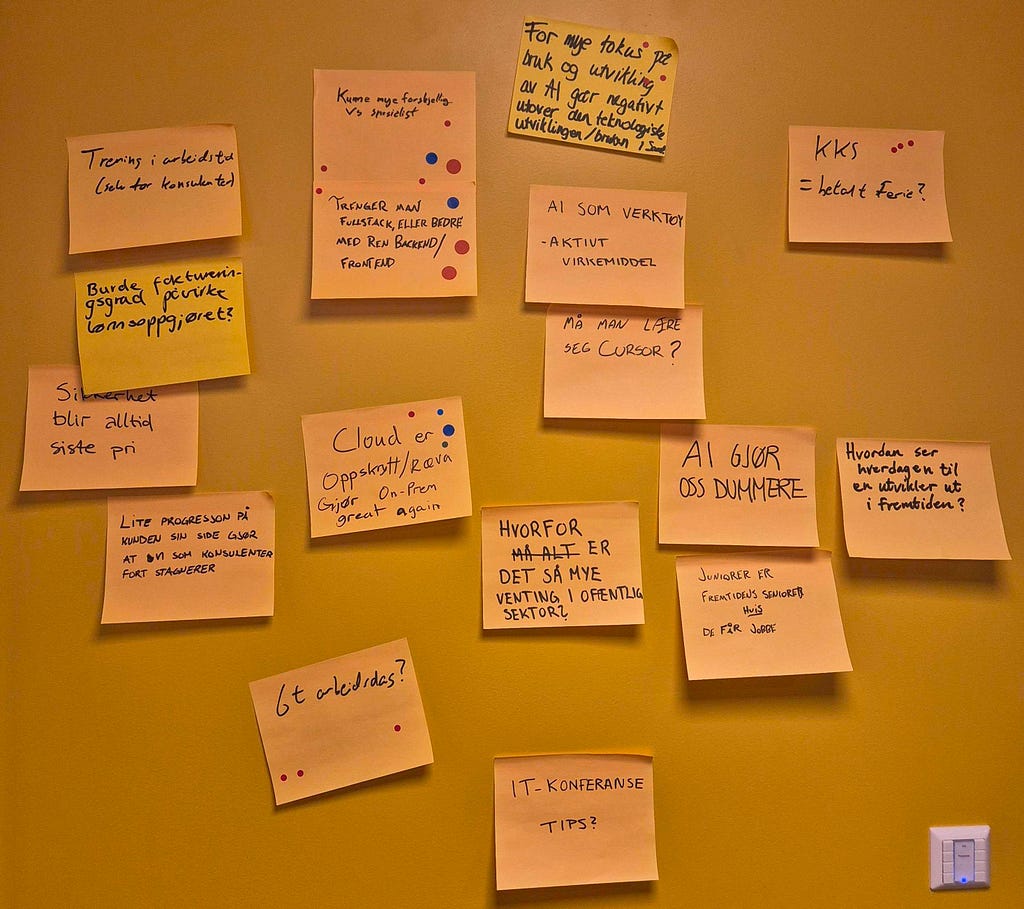 For mye fokus på
bruk og utvikling
av AI går negativt
utover den teknologiske
utviklingen/bruken i
Kunne mye forskjellig
vs spesialist
Trening i arbeidstid
(selv for konsulenter)
KKS
= betalt Ferie?
TRENGER MAN
FULLSTACK, ELLER BEDRE
MED REN BACKEND/
FRONTEND
AI SOM VERKTØY
- AKTIVT
VIRKEMIDDEL
Burde fakturerin-
gsgrad påvirke
lønnsoppgjøret?
MÅ MAN LÆRE
SEG CURSOR?
Sikkerhet
blir alltid
siste pri
Cloud er
Oppskrytt/Ræva
Gjør On-Prem
great again
AI GJØR
OSS DUMMERE
Hvordan ser
hverdagen til
en utvikler ut
i fremtiden?
LITE PROGRESSON PÅ
KUNDEN SIN SIDE GJØR
AT VI SOM KONSULENTER
FORT STAGNERER
HVORFOR
MÅ ALT ER
DET SÅ MYE
VENTING I OFFENTLIG
SEKTOR?
JUNIORER ER
FREMTIDENS SENIORER
HVIS
DE FÅR JOBBE
6t arbeidsdag?
IT-KONFERANSE
TIPS?